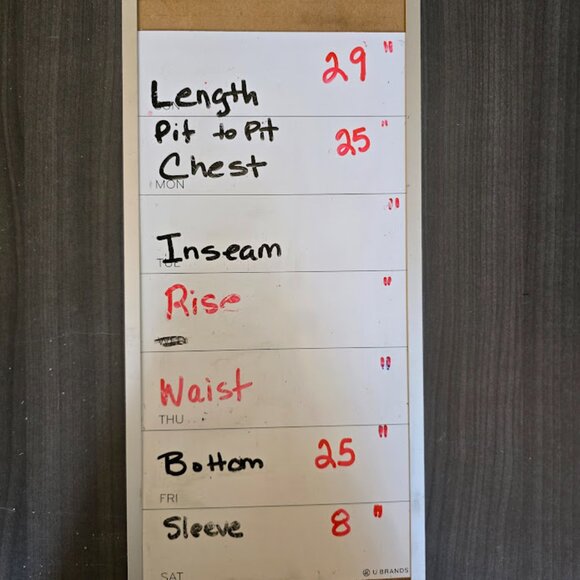 29 "
Length
Pit to Pit
25 "
Chest
MON
"
Inseam
"
Rise
"
Waist
THU
Bottom 25 "
FRI
Sleeve 8 "
SAT
U BRANDS